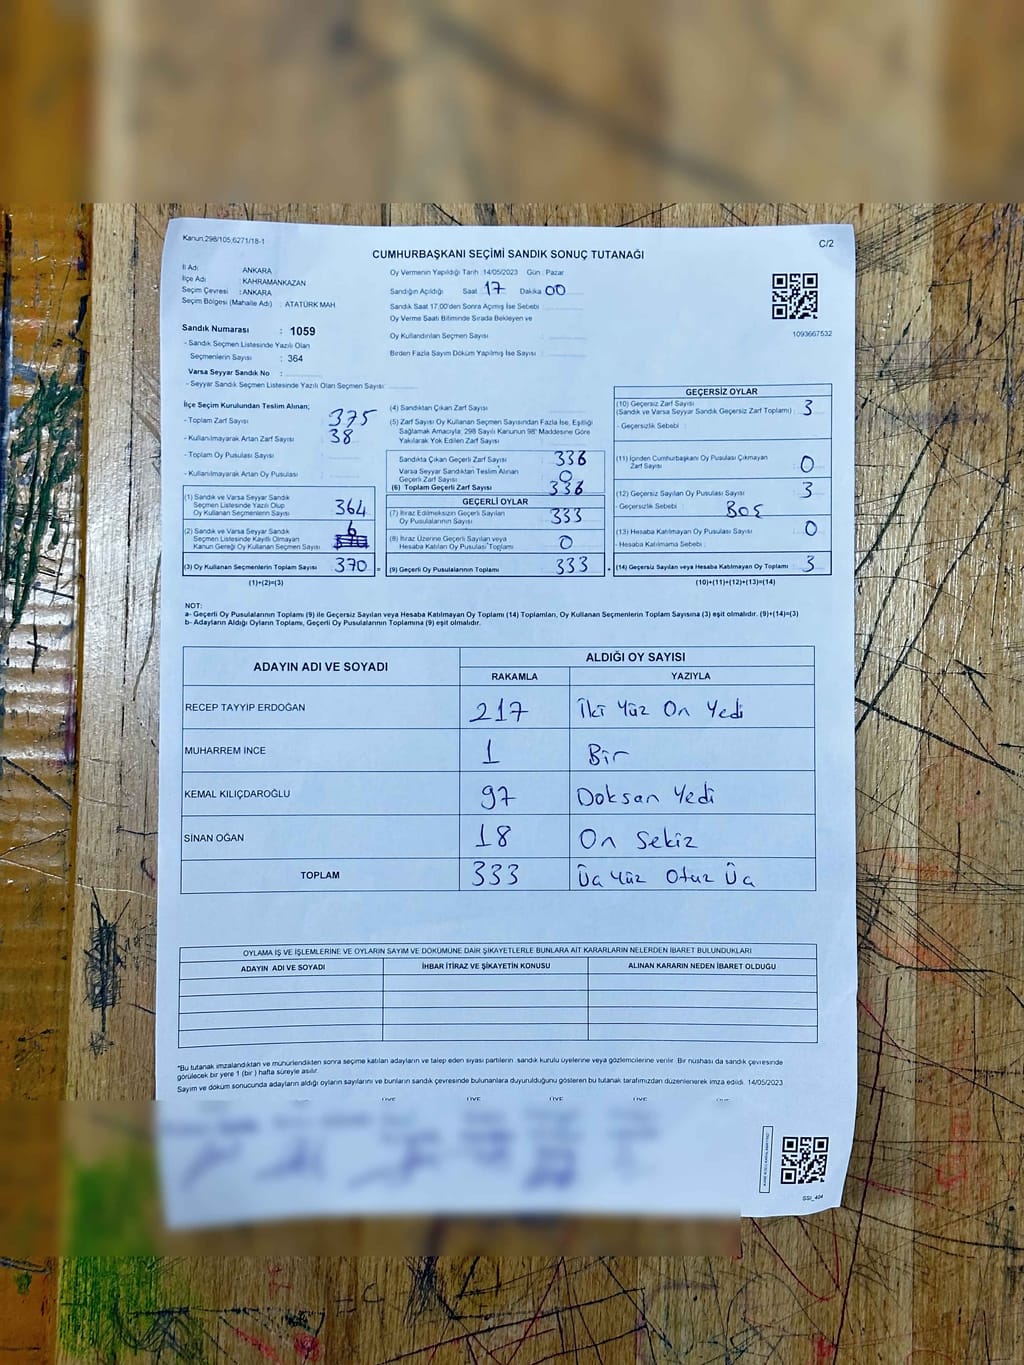 Kanun:298/105;6271/18-1
C/2
CUMHURBAŞKANI SEÇİMİ SANDIK SONUÇ TUTANAĞI
İl Adı : ANKARA
İlçe Adı : KAHRAMANKAZAN
Seçim Çevresi : ANKARA
Seçim Bölgesi (Mahalle Adı) : ATATÜRK MAH.
Oy Vermenin Yapıldığı Tarih :14/05/2023 Gün : Pazar
Sandığın Açıldığı Saat 17 Dakika 00
Sandık Saat 17.00'den Sonra Açılmış İse Sebebi
Oy Verme Saati Bitiminde Sırada Bekleyen ve
Oy Kullandırılan Seçmen Sayısı
Birden Fazla Sayım Döküm Yapılmış İse Sayısı
1093667532
Sandık Numarası : 1059
- Sandık Seçmen Listesinde Yazılı Olan
Seçmenlerin Sayısı : 364
Varsa Seyyar Sandık No :
- Seyyar Sandık Seçmen Listesinde Yazılı Olan Seçmen Sayısı
İlçe Seçim Kurulundan Teslim Alınan;
- Toplam Zarf Sayısı 375
- Kullanılmayarak Artan Zarf Sayısı 38
- Toplam Oy Pusulası Sayısı
- Kullanılmayarak Artan Oy Pusulası
(1) Sandık ve Varsa Seyyar Sandık
Seçmen Listesinde Yazılı Olup
Oy Kullanan Seçmenlerin Sayısı 364
(2) Sandık ve Varsa Seyyar Sandık
Seçmen Listesinde Kayıtlı Olmayan
Kanun Gereği Oy Kullanan Seçmen Sayısı 6
(3) Oy Kullanan Seçmenlerin Toplam Sayısı 370 =
(1)+(2)=(3)
(4) Sandıktan Çıkan Zarf Sayısı
(5) Zarf Sayısı Oy Kullanan Seçmen Sayısından Fazla İse, Eşitliği
Sağlamak Amacıyla; 298 Sayılı Kanunun 98' Maddesine Göre
Yakılarak Yok Edilen Zarf Sayısı
Sandıkta Çıkan Geçerli Zarf Sayısı 336
Varsa Seyyar Sandıktan Teslim Alınan
Geçerli Zarf Sayısı 0
(6) Toplam Geçerli Zarf Sayısı 336
GEÇERLİ OYLAR
(7) İtiraz Edilmeksizin Geçerli Sayılan
Oy Pusulalarının Sayısı 333
(8) İtiraz Üzerine Geçerli Sayılan veya
Hesaba Katılan Oy Pusulası Toplamı 0
(9) Geçerli Oy Pusulalarının Toplamı 333
GEÇERSİZ OYLAR
(10) Geçersiz Zarf Sayısı
(Sandık ve Varsa Seyyar Sandık Geçersiz Zarf Toplamı) : 3
- Geçersizlik Sebebi :
(11) İçinden Cumhurbaşkanı Oy Pusulası Çıkmayan
Zarf Sayısı 0
(12) Geçersiz Sayılan Oy Pusulası Sayısı 3
- Geçersizlik Sebebi : BOŞ
(13) Hesaba Katılmayan Oy Pusulası Sayısı 0
- Hesaba Katılmama Sebebi :
(14) Geçersiz Sayılan veya Hesaba Katılmayan Oy Toplamı 3
(10)+(11)+(12)+(13)=(14)
NOT:
a- Geçerli Oy Pusulalarının Toplamı (9) ile Geçersiz Sayılan veya Hesaba Katılmayan Oy Toplamı (14) Toplamları, Oy Kullanan Seçmenlerin Toplam Sayısına (3) eşit olmalıdır. (9)+(14)=(3)
b- Adayların Aldığı Oyların Toplamı, Geçerli Oy Pusulalarının Toplamına (9) eşit olmalıdır.
ADAYIN ADI VE SOYADI
ALDIĞI OY SAYISI
RAKAMLA YAZIYLA
RECEP TAYYİP ERDOĞAN 217 İki Yüz On Yedi
MUHARREM İNCE 1 Bir
KEMAL KILIÇDAROĞLU 97 Doksan Yedi
SİNAN OĞAN 18 On Sekiz
TOPLAM 333 Üç Yüz Otuz Üç
OYLAMA İŞ VE İŞLEMLERİNE VE OYLARIN SAYIM VE DÖKÜMÜNE DAİR ŞİKAYETLERLE BUNLARA AİT KARARLARIN NELERDEN İBARET BULUNDUKLARI
ADAYIN ADI VE SOYADI İHBAR İTİRAZ VE ŞİKAYETİN KONUSU ALINAN KARARIN NEDEN İBARET OLDUĞU
*Bu tutanak imzalandıktan ve mühürlendikten sonra seçime katılan adayların ve talep eden siyasi partilerin sandık kurulu üyelerine veya gözlemcilerine verilir. Bir nüshası da sandık çevresinde
görülecek bir yere 1 (bir) hafta süreyle asılır.
Sayım ve döküm sonucunda adayların aldığı oyların sayılarını ve bunların sandık çevresinde bulunanlara duyurulduğunu gösteren bu tutanak tarafımızdan düzenlenerek imza edildi. 14/05/2023
ÜYE ÜYE ÜYE ÜYE ÜYE
SSI_404